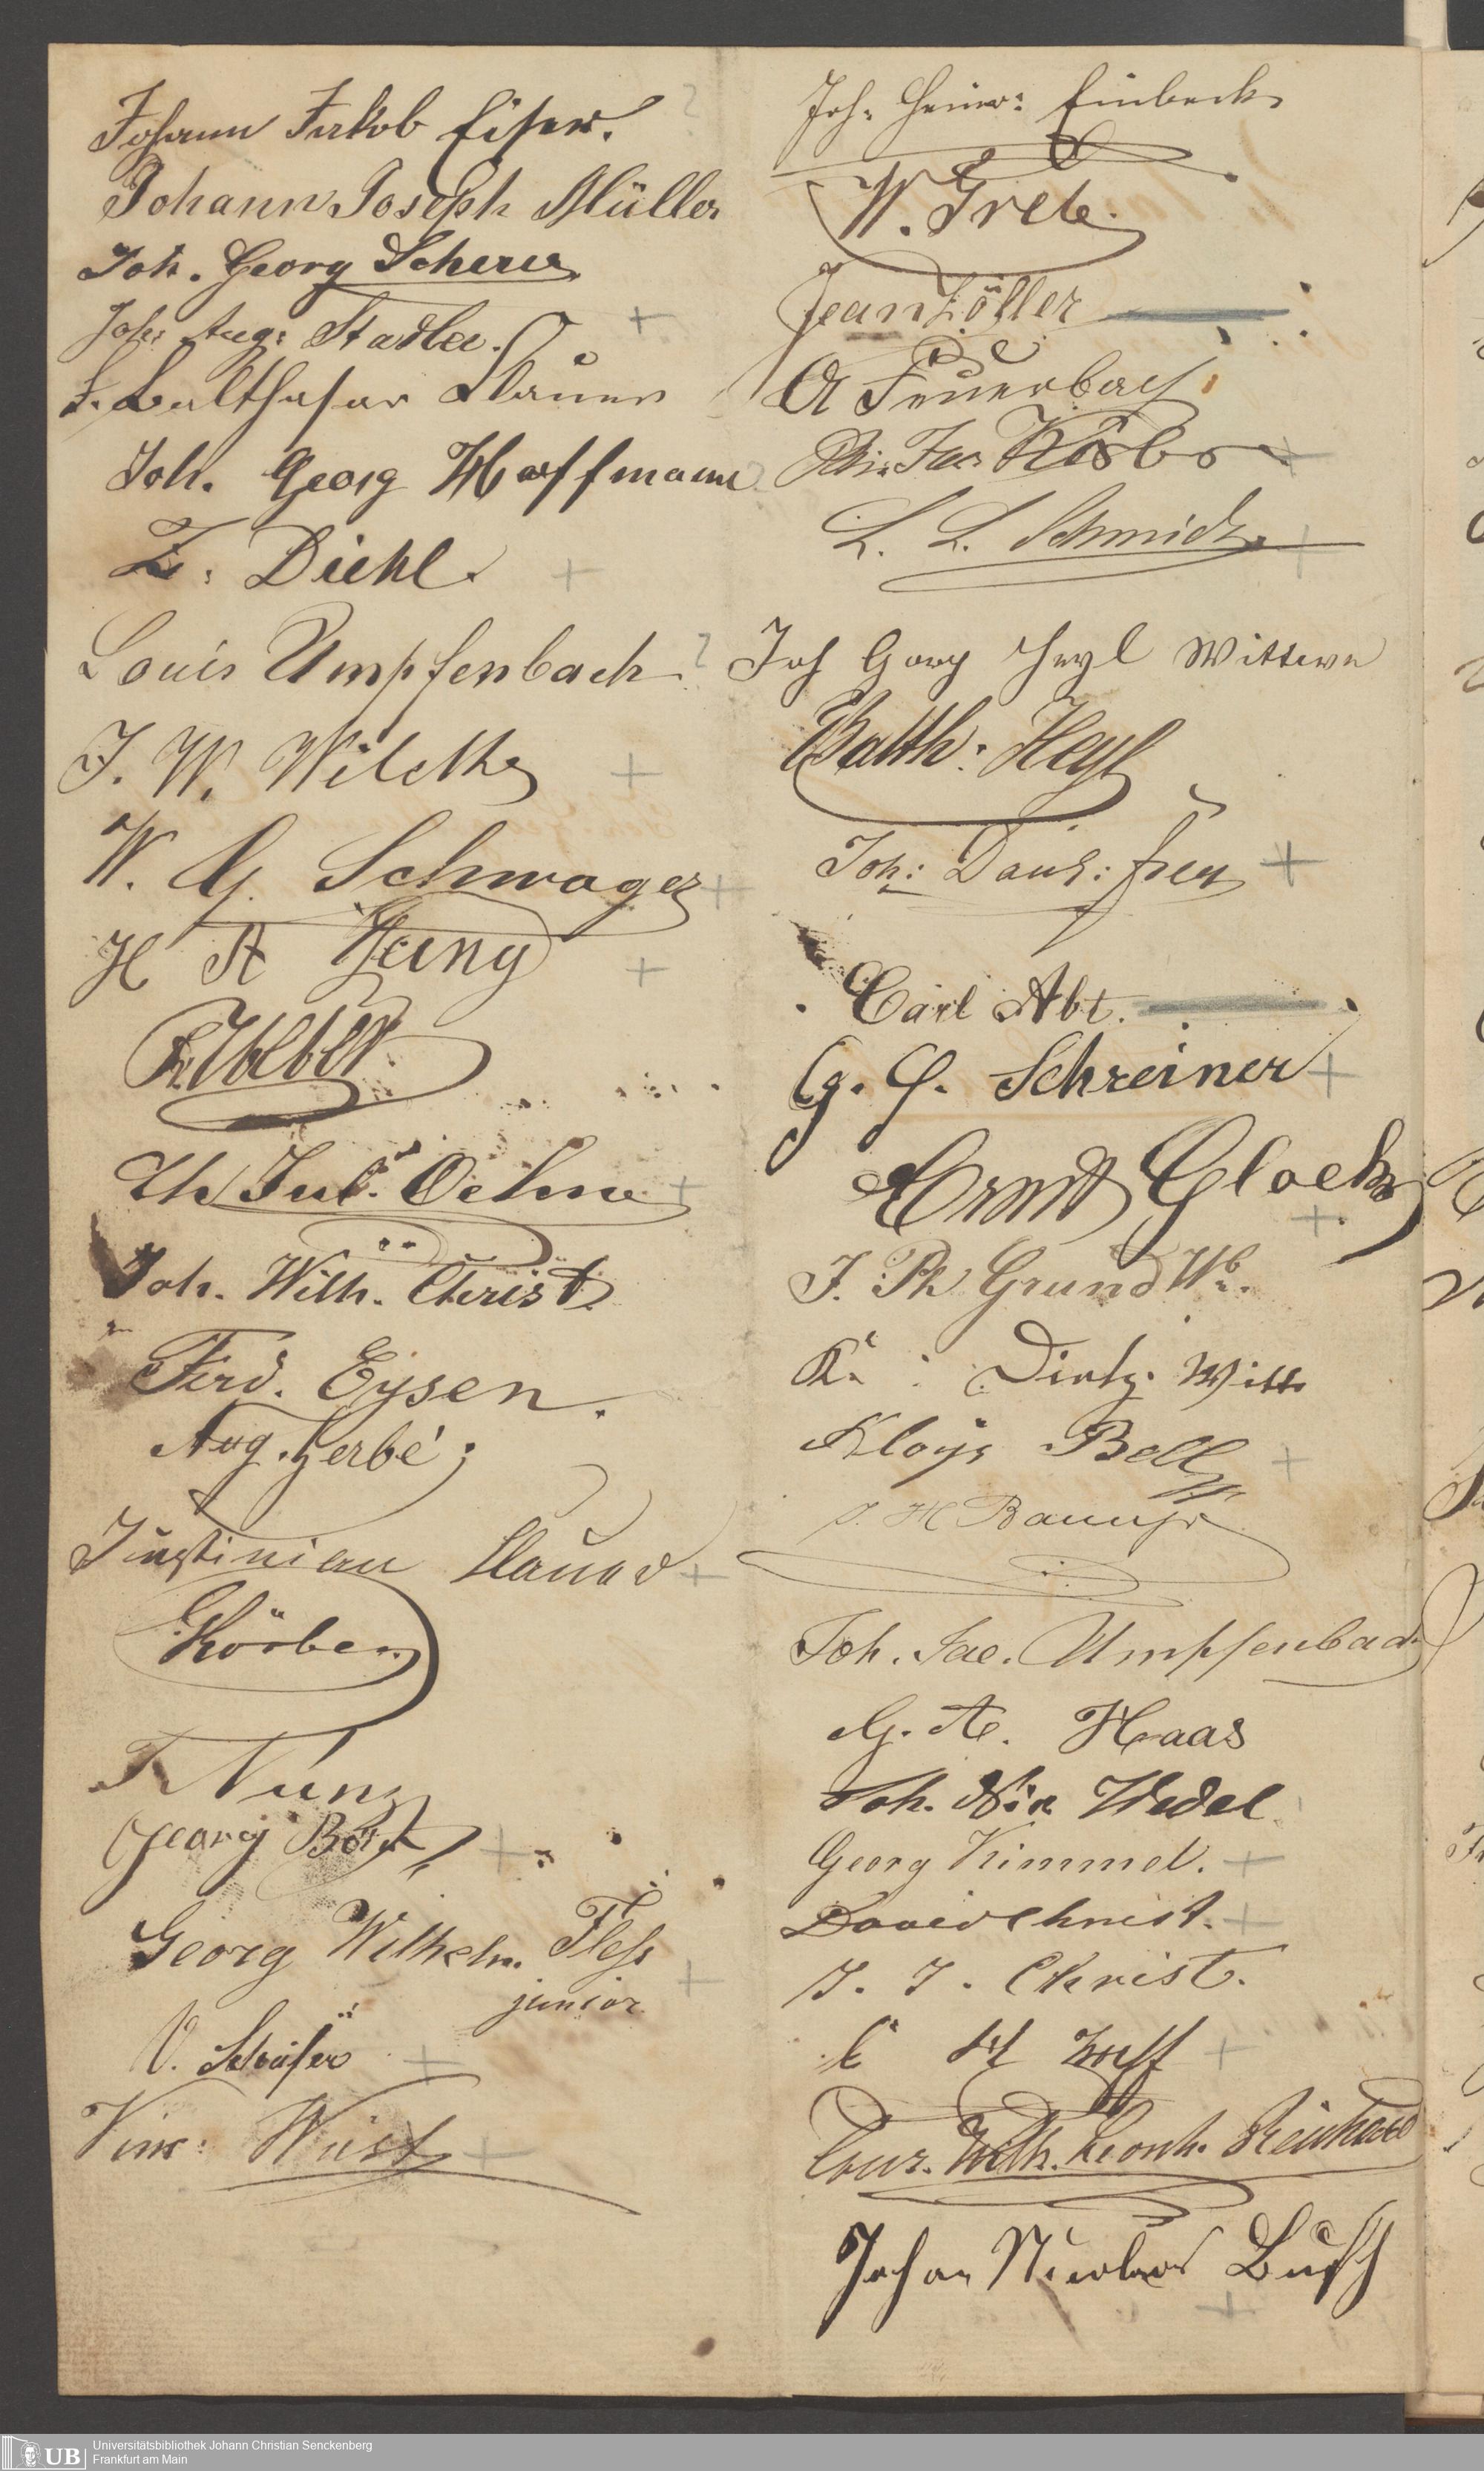 Johann Jakob Eiser.
Johann Joseph Müller
Joh. Georg Scherer
Joh: Aug: Stadler.
J. Balthasar
Joh. Georg Hoffmann
Z. Diehl.
Louis Umpfenbach
J. W. Wilcke
W. G. Schwager
H A Jung
Weber
Th Jul. Oehme
Joh. Wilh. Christ
Ferd. Eysen.
Aug. Gerbé;
Justinian
Körber
Georg
Georg Wilhelm Fless
junior
V. Schäfer
Vinc: Wüst
Joh. Heinr: Einbeck
W. Grete.
Jean Zöller
A Feuerbach
Phi. Jac. Körber
L. L. Schmidt
Joh Georg Heyl Wittwe
Balth: Heyl
Joh: Danl: Frey
Carl Abt.
G. G. Schreiner
Ernst Glock
J. Ph Grund We.
Dietz. Witt
Aloys Bell
J. H
Joh. Jac. Umpfenbach
G. A. Haas
Joh. Nic Wedel
Georg Kimmel.
David Christ.
J. J. Christ.
Wilh. Leonh. Reinhard
Johan Nicolaus Busch
Universitätsbibliothek Johann Christian Senckenberg
Frankfurt am Main
UB